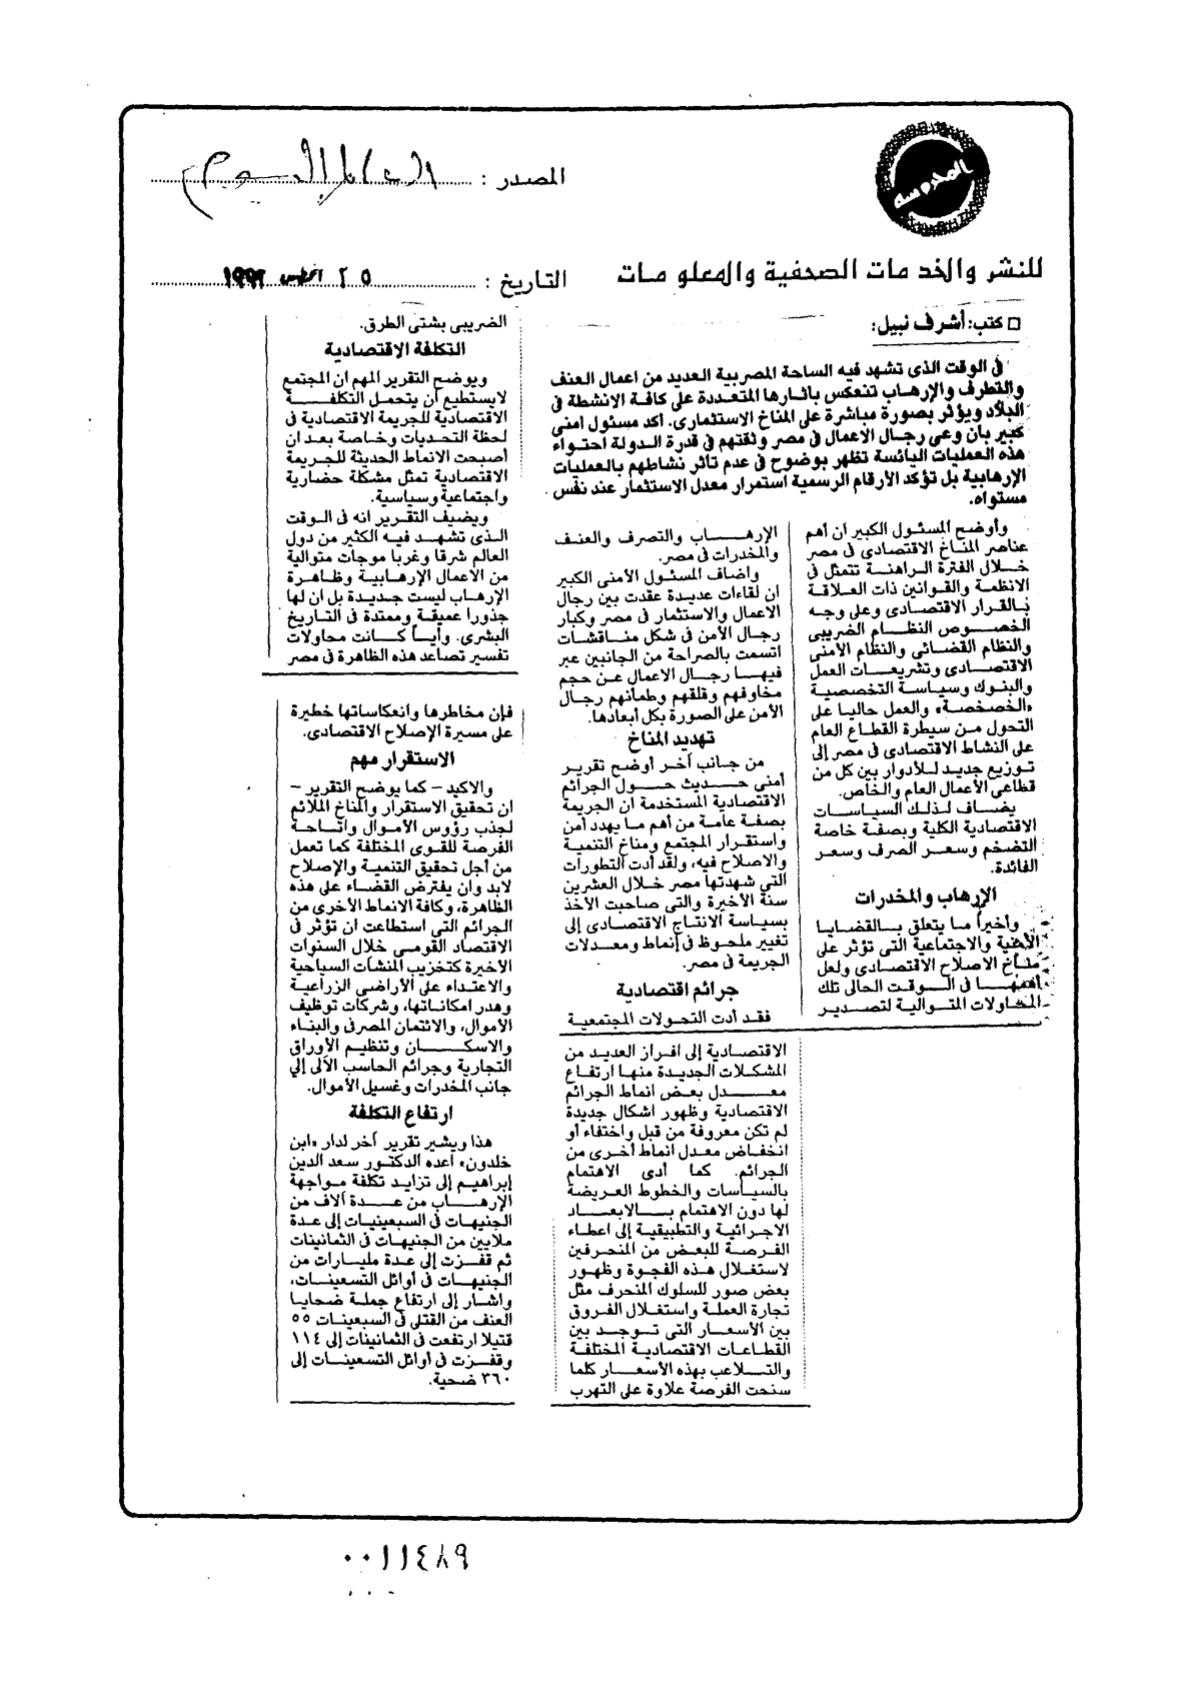 المحروسة
المصدر : العالم اليوم
للنشر والخدمات الصحفية والمعلومات
التاريخ : ٢٥ اغسطس ١٩٩٣
□ كتب: أشرف نبيل:
فى الوقت الذى تشهد فيه الساحة المصربية العديد من اعمال العنف
والتطرف والإرهـاب تنعكس باثـارها المتعددة على كافة الانشطة فى
البلاد ويؤثر بصورة مباشرة على المناخ الاستثمارى. أكد مسئول أمنى
كبير بان وعى رجال الاعمال فى مصر وثقتهم فى قدرة الدولة احتواء
هذه العمليات اليائسة تظهر بوضوح فى عدم تاثر نشاطهم بالعمليات
الإرهابية بل تؤكد الأرقام الرسمية استمرار معدل الاستثمار عند نفس
مستواه.
وأوضح المسئول الكبير ان أهم
عناصر المناخ الاقتصادى فى مصر
خلال الفترة الراهنة تتمثل فى
الانظمة والقوانين ذات العلاقة
بالقرار الاقتصادى وعلى وجه
الخصوص النظام الضريبى
والنظام القضائى والنظام الأمنى
الاقتصادى وتشريعات العمل
والبنوك وسياسة التخصصية
«الخصخصة» والعمل حاليا على
التحول من سيطرة القطاع العام
على النشاط الاقتصادى فى مصر إلى
توزيع جديد للأدوار بين كل من
قطاعى الأعمال العام والخاص.
يضاف لذلك السياسات
الاقتصادية الكلية وبصفة خاصة
التضخم وسعر الصرف وسعر
الفائدة.
الإرهاب والمخدرات
وأخيراً ما يتعلق بالقضايا
الأمنية والاجتماعية التى تؤثر على
مناخ الاصلاح الاقتصادى ولعل
أهمها فى الوقت الحالى تلك
المحاولات المتوالية لتصدير
الإرهاب والتصرف والعنف
والمخدرات فى مصر.
واضاف المسئول الأمنى الكبير
ان لقاءات عديدة عقدت بين رجال
الاعمال والاستثمار فى مصر وكبار
رجال الأمن فى شكل مناقشات
اتسمت بالصراحة من الجانبين عبر
فيها رجال الاعمال عن حجم
مخاوفهم وقلقهم وطمانهم رجال
الأمن على الصورة بكل أبعادها.
تهديد المناخ
من جانب آخر أوضح تقرير
أمنى حديث حول الجرائم
الاقتصادية المستخدمة ان الجريمة
بصفة عامة من أهم ما يهدد أمن
واستقرار المجتمع ومناخ التنمية
والاصلاح فيه، ولقد أدت التطورات
التى شهدتها مصر خلال العشرين
سنة الأخيرة والتى صاحبت الأخذ
بسياسة الانتاج الاقتصادى إلى
تغيير ملحوظ فى إنماط ومعدلات
الجريمة فى مصر.
جرائم اقتصادية
فقد أدت التحولات المجتمعية
الاقتصادية إلى افراز العديد من
المشكلات الجديدة منها ارتفاع
معدل بعض انماط الجرائم
الاقتصادية وظهور اشكال جديدة
لم تكن معروفة من قبل واختفاء أو
انخفاض معدل انماط أخرى من
الجرائم. كما أدى الاهتمام
بالسياسات والخطوط العريضة
لها دون الاهتمام بالابعاد
الاجرائية والتطبيقية إلى اعطاء
الفرصة للبعض من المنحرفين
لاستغلال هذه الفجوة وظهور
بعض صور للسلوك المنحرف مثل
تجارة العملة واستغلال الفروق
بين الأسعار التى توجد بين
القطاعات الاقتصادية المختلفة
والتلاعب بهذه الأسعار كلما
سنحت الفرصة علاوة على التهرب
الضريبى بشتى الطرق.
التكلفة الاقتصادية
ويوضح التقرير المهم ان المجتمع
لايستطيع أن يتحمل التكلفة
الاقتصادية للجريمة الاقتصادية فى
لحظة التحديات وخاصة بعد ان
أصبحت الانماط الحديثة للجريمة
الاقتصادية تمثل مشكلة حضارية
واجتماعية وسياسية.
ويضيف التقرير انه فى الوقت
الذى تشهد فيه الكثير من دول
العالم شرقا وغربا موجات متوالية
من الأعمال الإرهابية وظاهرة
الإرهاب ليست جديدة بل ان لها
جذورا عميقة وممتدة فى التاريخ
البشرى. وأياً كانت محاولات
تفسير تصاعد هذه الظاهرة فى مصر
فإن مخاطرها وانعكاساتها خطيرة
على مسيرة الإصلاح الاقتصادى.
الاستقرار مهم
والاكيد – كما يوضح التقرير –
ان تحقيق الاستقرار والمناخ الملائم
لجذب رؤوس الأموال واتاحة
الفرصة للقوى المختلفة كما تعمل
من أجل تحقيق التنمية والإصلاح
لابد وان يفترض القضاء على هذه
الظاهرة، وكافة الانماط الأخرى من
الجرائم التى استطاعت ان تؤثر فى
الاقتصاد القومى خلال السنوات
الأخيرة كتخريب المنشآت السياحية
والاعتداء على الأراضى الزراعية
وهدر امكاناتها، وشركات توظيف
الأموال، والائتمان المصرفى والبناء
والاسكان وتنظيم الأوراق
التجارية وجرائم الحاسب الآلى إلى
جانب المخدرات وغسيل الأموال.
ارتفاع التكلفة
هذا ويشير تقرير آخر لدار «ابن
خلدون» أعده الدكتور سعد الدين
إبراهيم إلى تزايد تكلفة مواجهة
الإرهاب من عدة آلاف من
الجنيهات فى السبعينيات إلى عدة
ملايين من الجنيهات فى الثمانينات
ثم قفزت إلى عدة مليارات من
الجنيهات فى أوائل التسعينات،
واشار إلى ارتفاع جملة ضحايا
العنف من القتلى فى السبعينات ٥٥
قتيلا ارتفعت فى الثمانينات إلى ١١٤
وقفزت فى أوائل التسعينات إلى
٣٦٠ ضحية.
٠٠١١٤٨٩